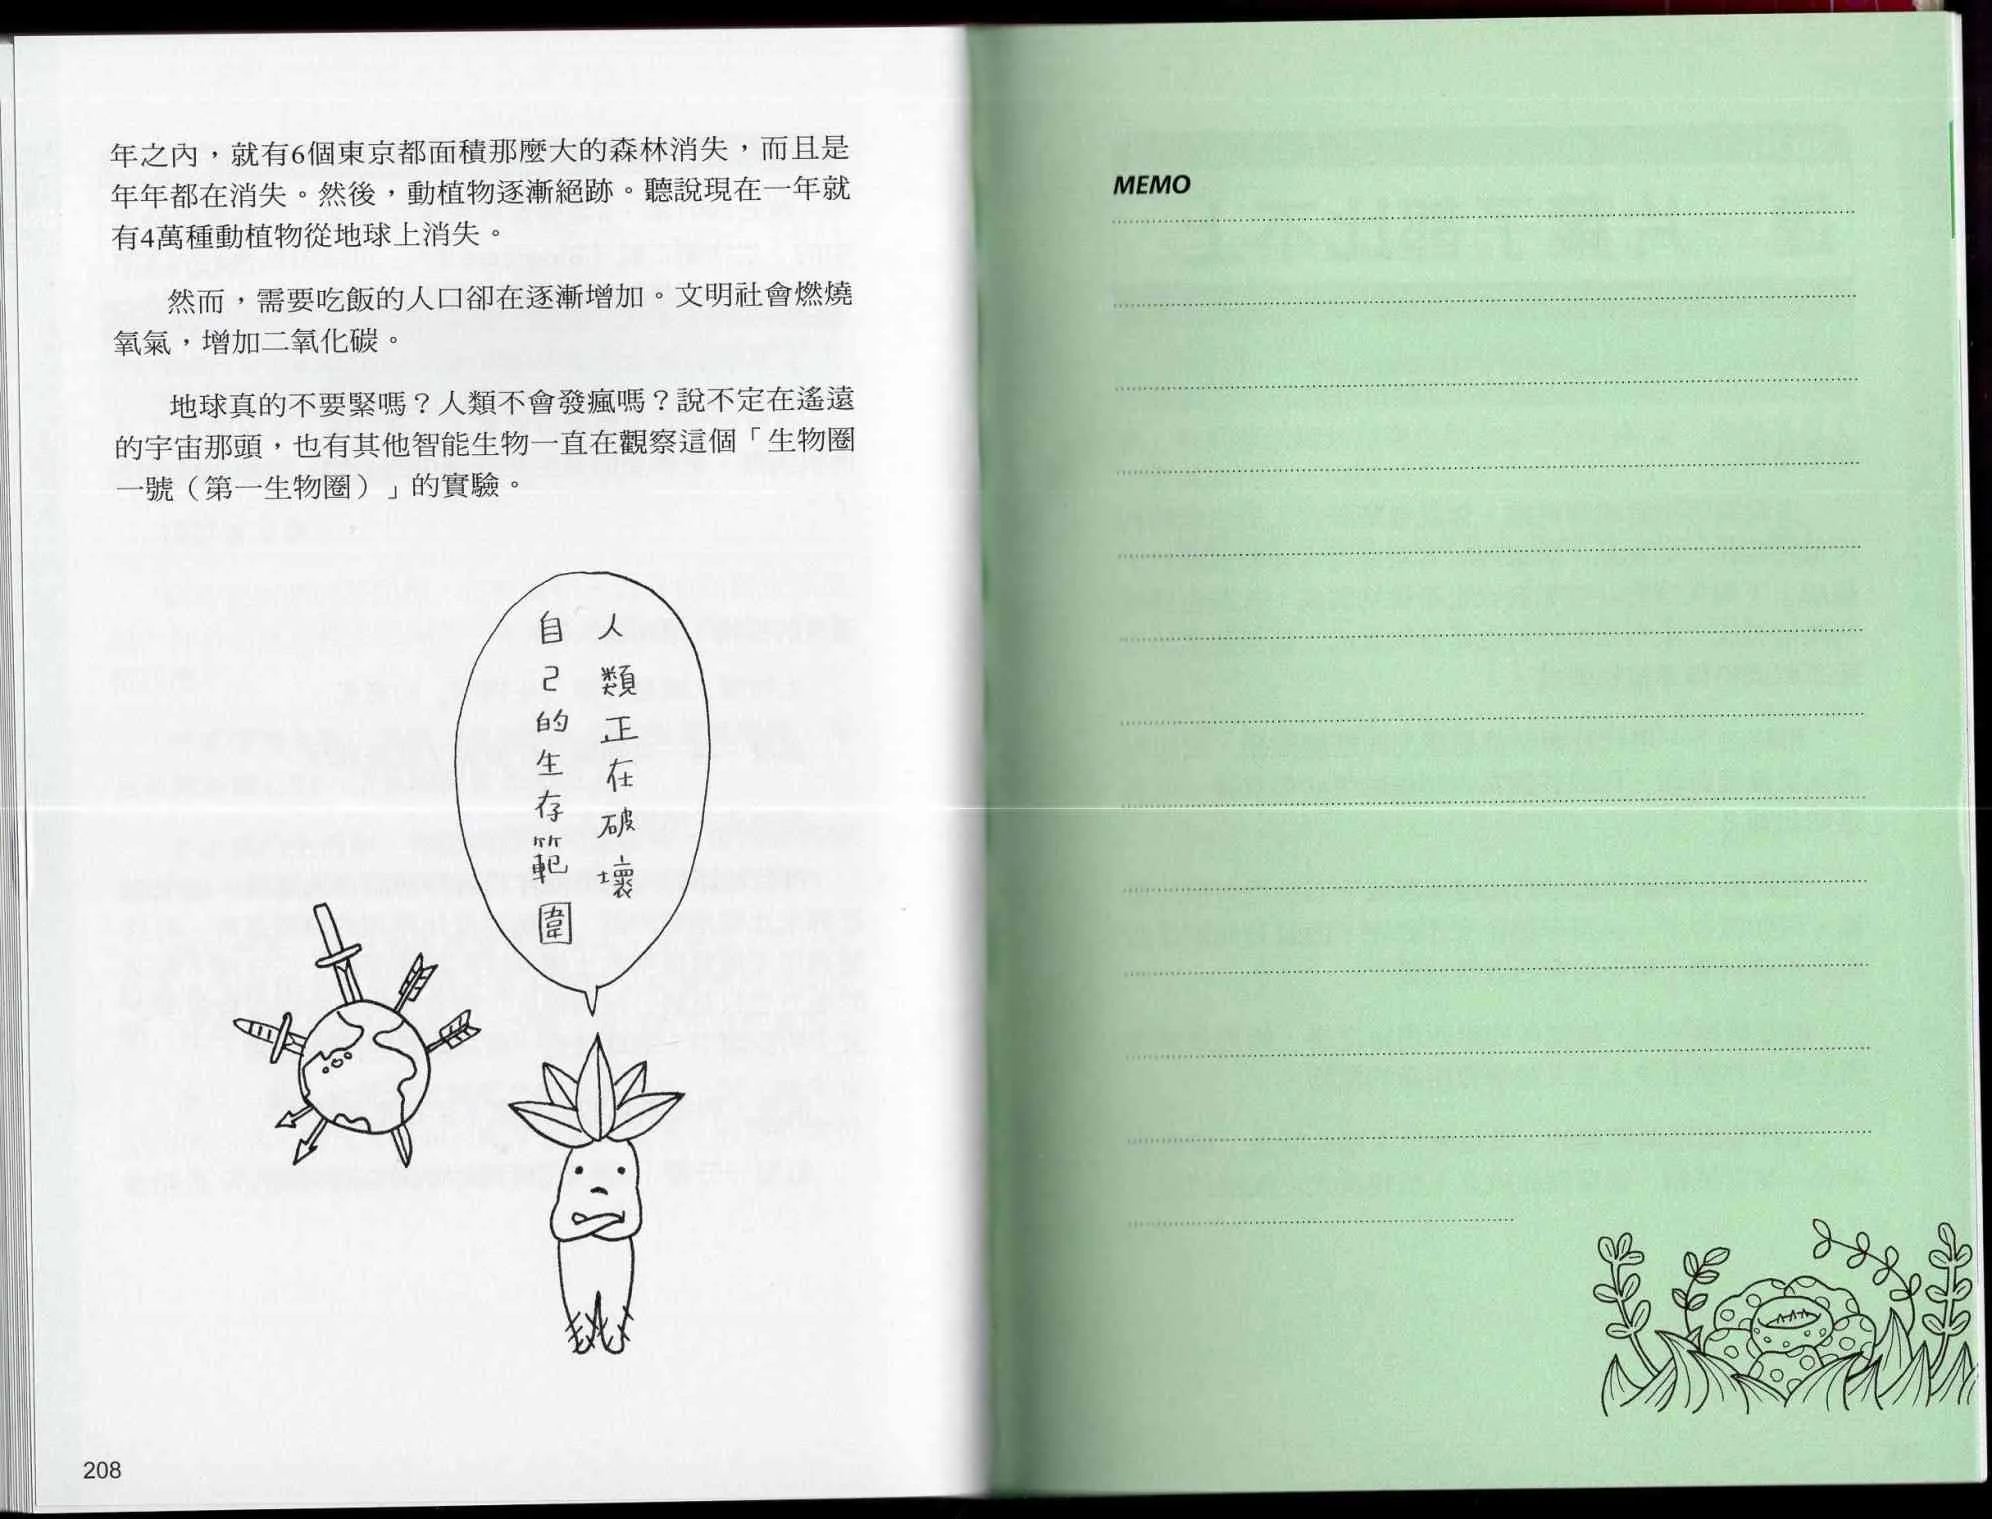 年之內，就有6個東京都面積那麼大的森林消失，而且是
年年都在消失。然後，動植物逐漸絕跡。聽說現在一年就
有4萬種動植物從地球上消失。
然而，需要吃飯的人口卻在逐漸增加。文明社會燃燒
氧氣，增加二氧化碳。
地球真的不要緊嗎？人類不會發瘋嗎？說不定在遙遠
的宇宙那頭，也有其他智能生物一直在觀察這個「生物圈
一號（第一生物圈）」的實驗。
人類正在破壞
自己的生存範圍
208
MEMO